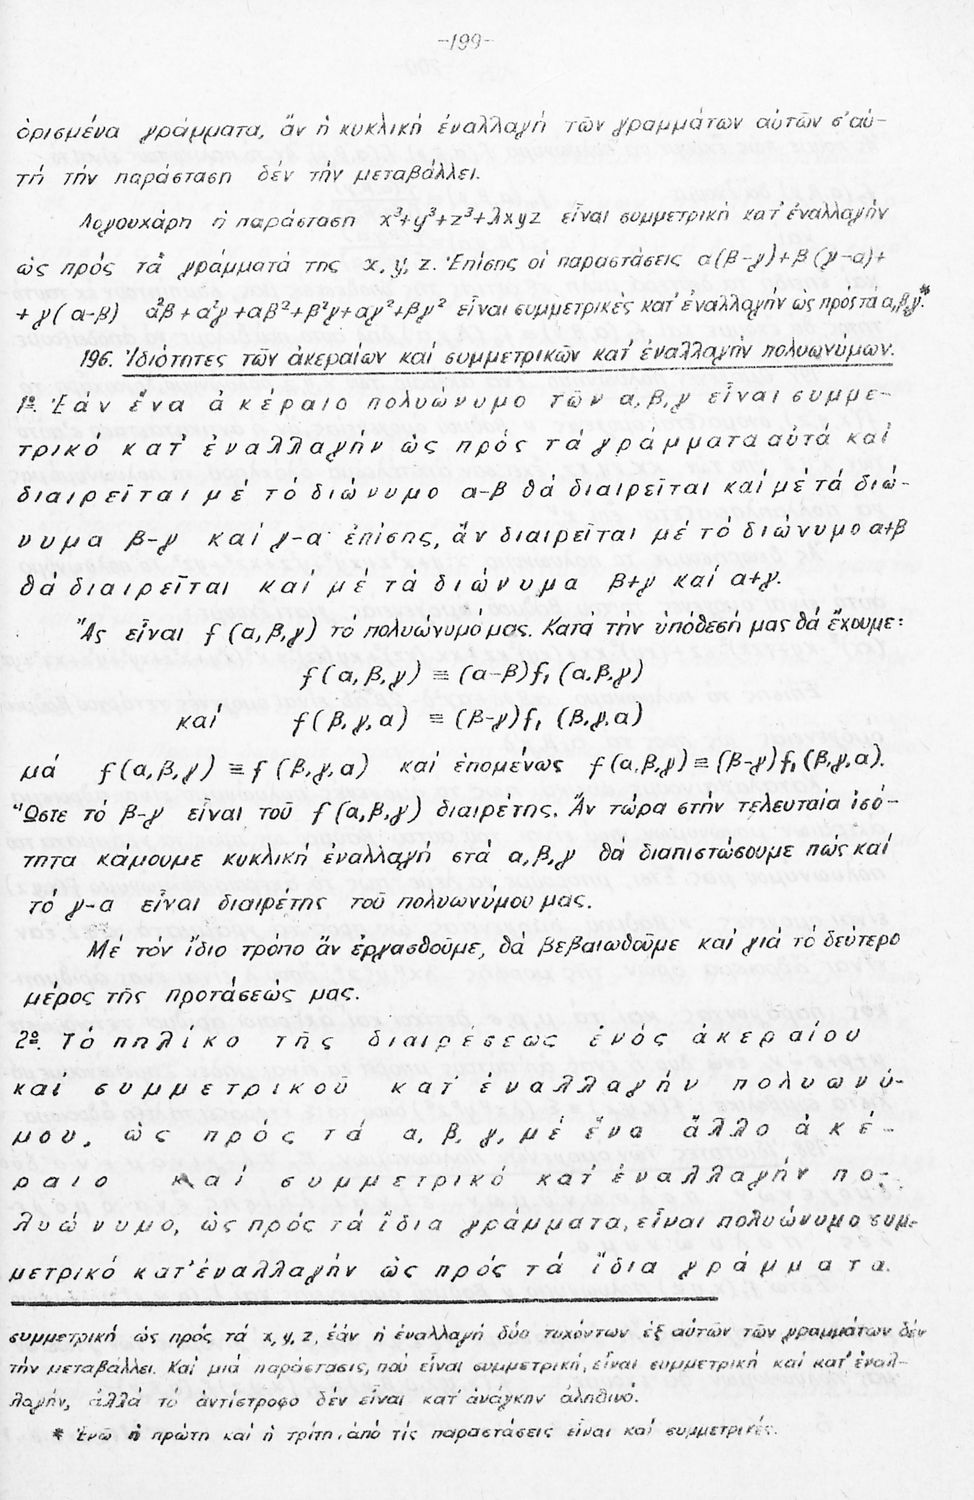 -199-
ὁρισμένα γράμματα, ἄν ἡ κυκλική ἐναλλαγή τῶν γραμμάτων αὐτῶν σ'αὐ-
τή τήν παράσταση δέν τήν μεταβάλλει.
Λογουχάρη ἡ παράσταση x³+y³+z³+λxyz εἶναι συμμετρική κατ'ἐναλλαγήν
ὡς πρός τά γράμματά της x, y, z. Ἐπίσης οἱ παραστάσεις α(β-γ)+β(γ-α)+
+γ(α-β) α²β+α²γ+αβ²+β²γ+αγ²+βγ² εἶναι συμμετρικές κατ'ἐναλλαγήν ὡς πρός τά α,β,γ.*
196. Ἰδιότητες τῶν ἀκεραίων καί συμμετρικῶν κατ' ἐναλλαγήν πολυωνύμων.
1º. Ἐάν ἕνα ἀκέραιο πολυώνυμο τῶν α,β,γ εἶναι συμμε-
τρικό κατ' ἐναλλαγήν ὡς πρός τά γράμματα αὐτά καί
διαιρεῖται μέ τό διώνυμο α-β θά διαιρεῖται καί μέ τά διώ-
νυμα β-γ καί γ-α· ἐπίσης, ἄν διαιρεῖται μέ τό διώνυμο α+β
θά διαιρεῖται καί μέ τά διώνυμα β+γ καί α+γ.
Ἄς εἶναι f(α,β,γ) τό πολυώνυμό μας. Κατά τήν ὑπόθεσή μας θά ἔχουμε:
f(α,β,γ) ≡ (α-β)f₁(α,β,γ)
καί f(β,γ,α) ≡ (β-γ)f₁(β,γ,α)
μά f(α,β,γ) ≡ f(β,γ,α) καί ἑπομένως f(α,β,γ) ≡ (β-γ)f₁(β,γ,α).
Ὥστε τό β-γ εἶναι τοῦ f(α,β,γ) διαιρέτης. Ἄν τώρα στήν τελευταία ἰσό-
τητα κάμουμε κυκλική ἐναλλαγή στά α,β,γ θά διαπιστώσουμε πώς καί
τό γ-α εἶναι διαιρέτης τοῦ πολυωνύμου μας.
Μέ τόν ἴδιο τρόπο ἄν ἐργασθοῦμε, θά βεβαιωθοῦμε καί γιά τό δεύτερο
μέρος τῆς προτάσεώς μας.
2º. Τό πηλίκο τῆς διαιρέσεως ἑνός ἀκεραίου
καί συμμετρικοῦ κατ' ἐναλλαγήν πολυωνύ-
μου, ὡς πρός τά α, β, γ, μέ ἕνα ἄλλο ἀκέ-
ραιο καί συμμετρικό κατ'ἐναλλαγήν πο-
λυώνυμο, ὡς πρός τά ἴδια γράμματα, εἶναι πολυώνυμο συμ-
μετρικό κατ'ἐναλλαγήν ὡς πρός τά ἴδια γράμματα.
συμμετρική ὡς πρός τά x, y, z, ἐάν ἡ ἐναλλαγή δύο τυχόντων ἐξ αὐτῶν τῶν γραμμάτων δέν
τήν μεταβάλλει. Καί μιά παράστασις, πού εἶναι συμμετρική, εἶναι συμμετρική καί κατ'ἐναλ-
λαγήν, ἀλλά τό ἀντίστροφο δέν εἶναι κατ'ἀνάγκην ἀληθινό.
* Ἐνῶ ἡ πρώτη καί ἡ τρίτη, ἀπό τίς παραστάσεις εἶναι καί συμμετρικές.